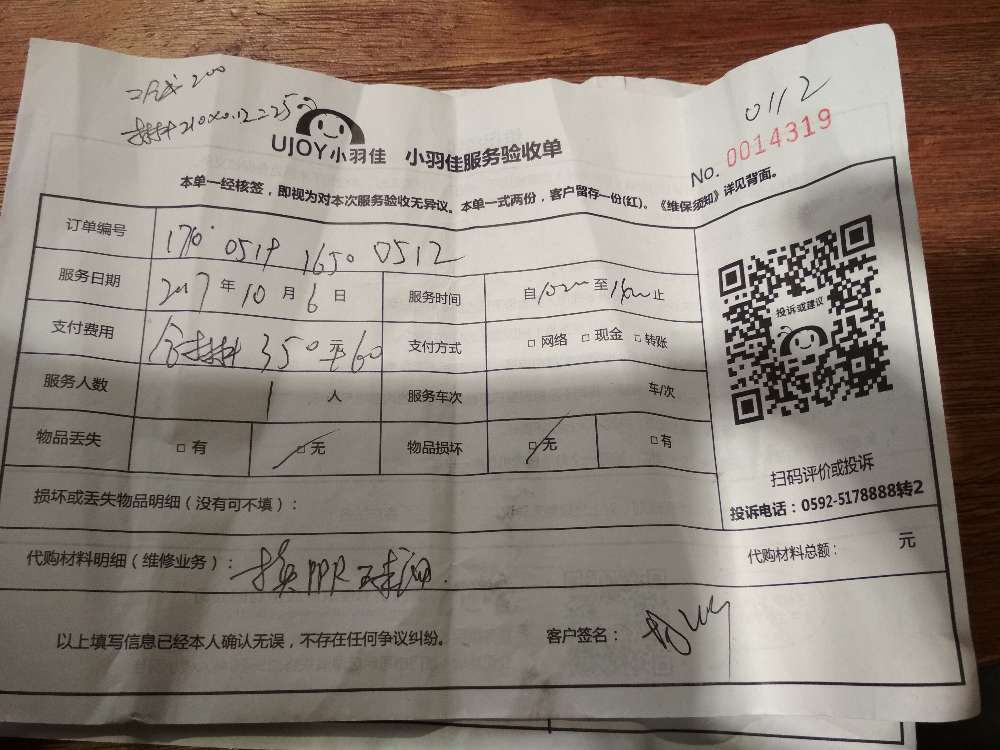 200
0112
UJOY小羽佳 小羽佳服务验收单
No. 0014319
本单一经核签，即视为对本次服务验收无异议。本单一式两份，客户留存一份(红)。《维保须知》详见背面。
订单编号 170 0519 1650 0512
服务日期 2017年10月6日 服务时间 自 至 止
支付费用 350元 支付方式 □网络 □现金 □转账
服务人数 1人 服务车次 车/次
物品丢失 □有 □无 物品损坏 □无 □有
损坏或丢失物品明细（没有可不填）：
代购材料明细（维修业务）：换PPR 代购材料总额： 元
以上填写信息已经本人确认无误，不存在任何争议纠纷。 客户签名：
投诉或建议
扫码评价或投诉
投诉电话：0592-5178888转2